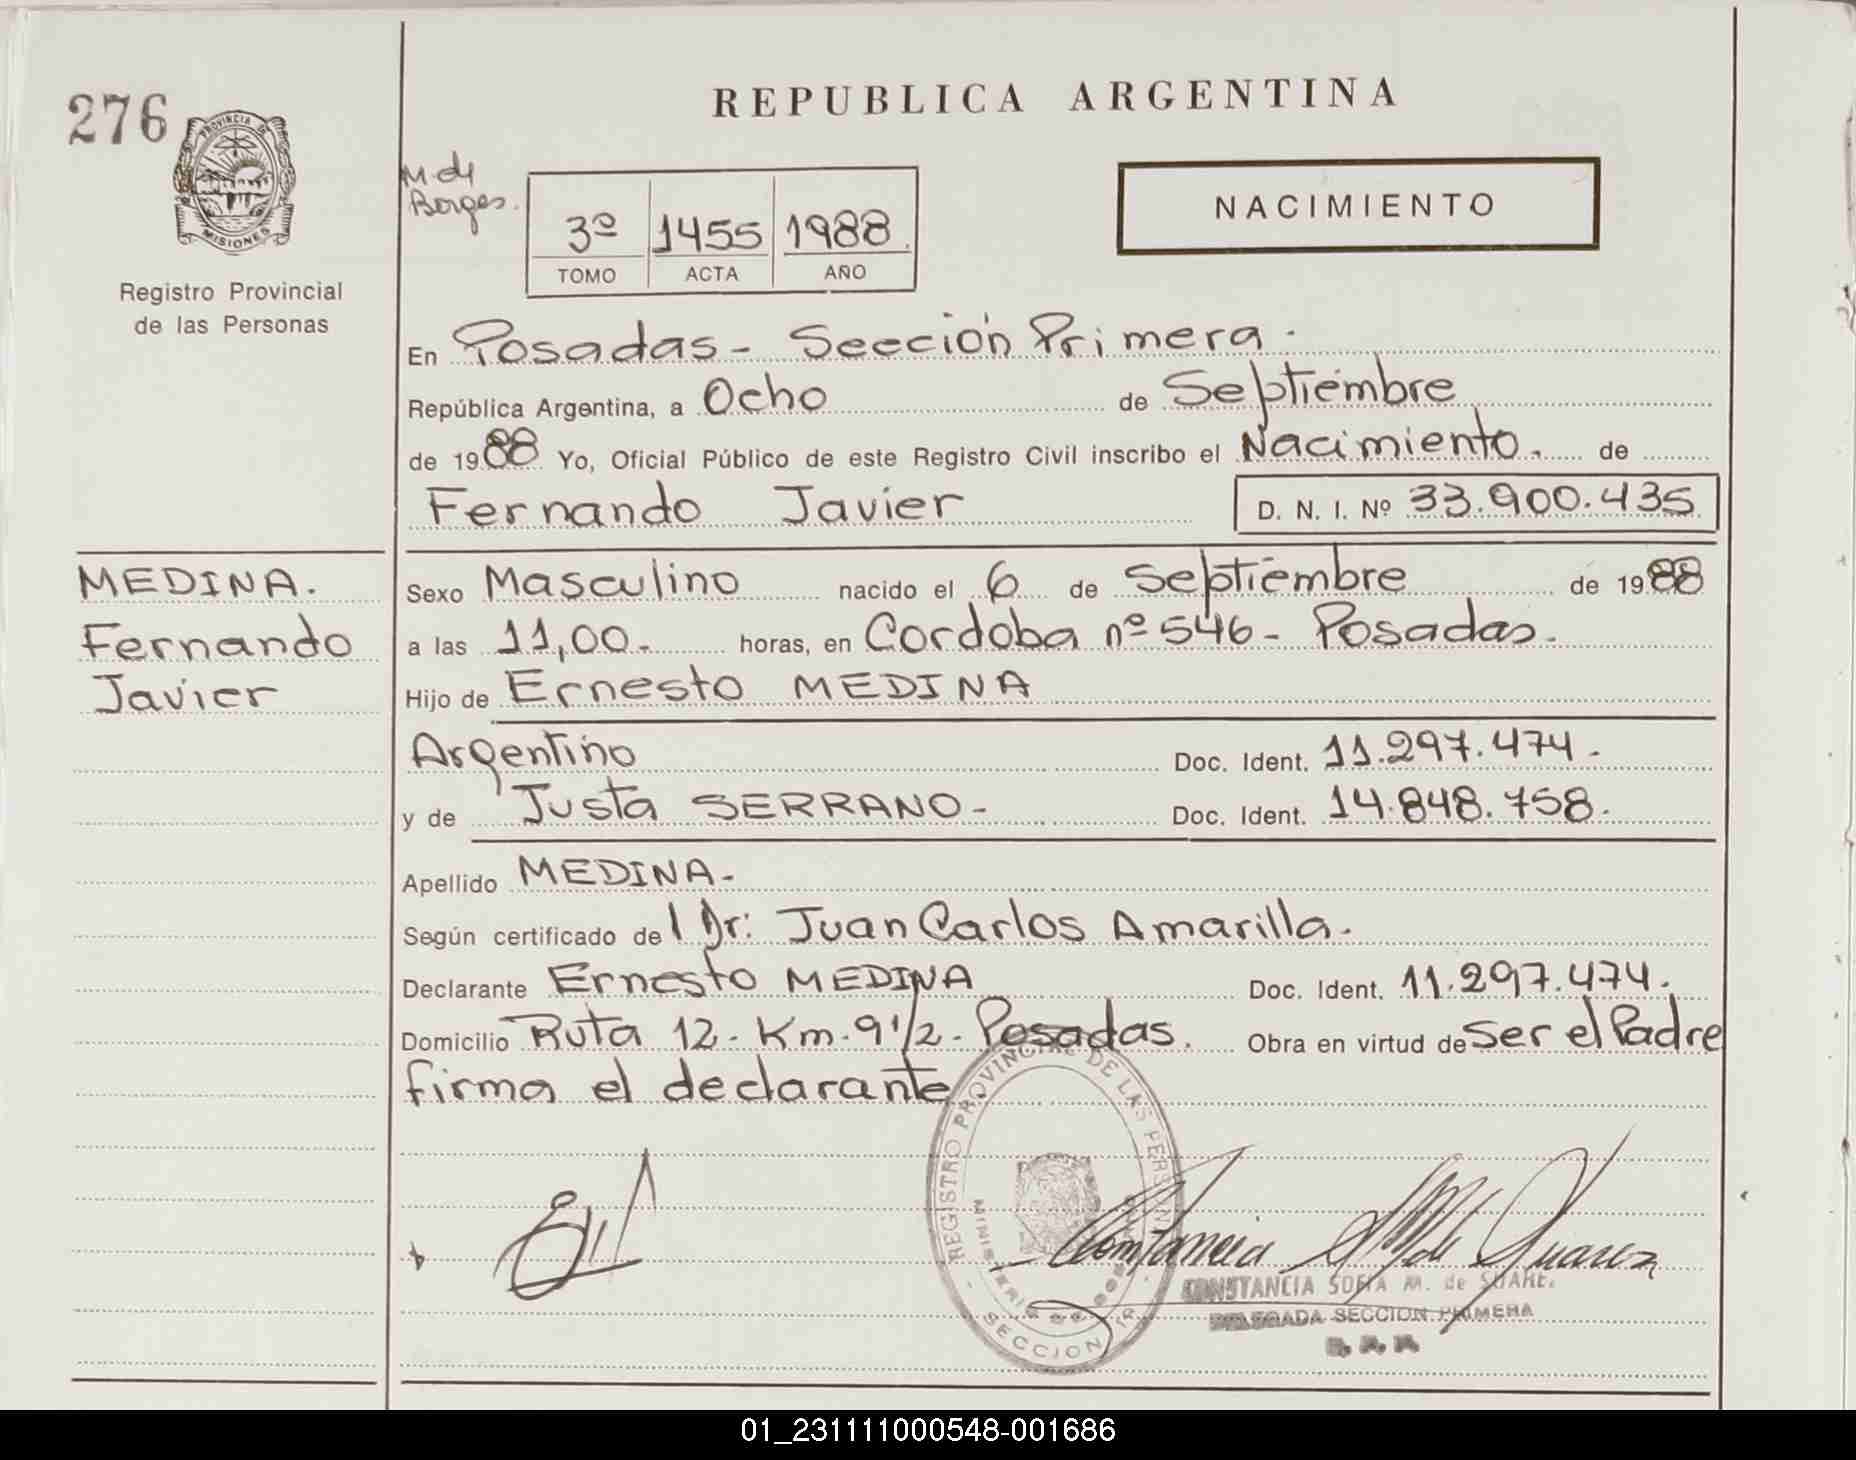 276
PROVINCIA DE
MISIONES
Registro Provincial
de las Personas
REPUBLICA ARGENTINA
M. de
Borges.
3º 1455 1988
TOMO ACTA AÑO
NACIMIENTO
En Posadas - Sección Primera.
República Argentina, a Ocho de Septiembre
de 1988 Yo, Oficial Público de este Registro Civil inscribo el Nacimiento. de
Fernando Javier D. N. I. Nº 33.900.435
MEDINA.
Fernando
Javier
Sexo Masculino nacido el 6 de Septiembre de 1988
a las 11,00. horas, en Cordoba nº 546 - Posadas.
Hijo de Ernesto MEDINA
Argentino Doc. Ident. 11.297.474.
y de Justa SERRANO - Doc. Ident. 14.848.758.
Apellido MEDINA.
Según certificado del Dr: Juan Carlos Amarilla.
Declarante Ernesto MEDINA Doc. Ident. 11.297.474.
Domicilio Ruta 12 - Km. 9 1/2 - Posadas. Obra en virtud de Ser el Padre
firma el declarante
REGISTRO PROVINCIAL DE LAS PERSONAS
MINISTERIO DE GOBIERNO
SECCION 1ª
Constancia de Suarez
CONSTANCIA SOFIA M. de SUARE.
DELEGADA SECCION PRIMERA
01_231111000548-001686